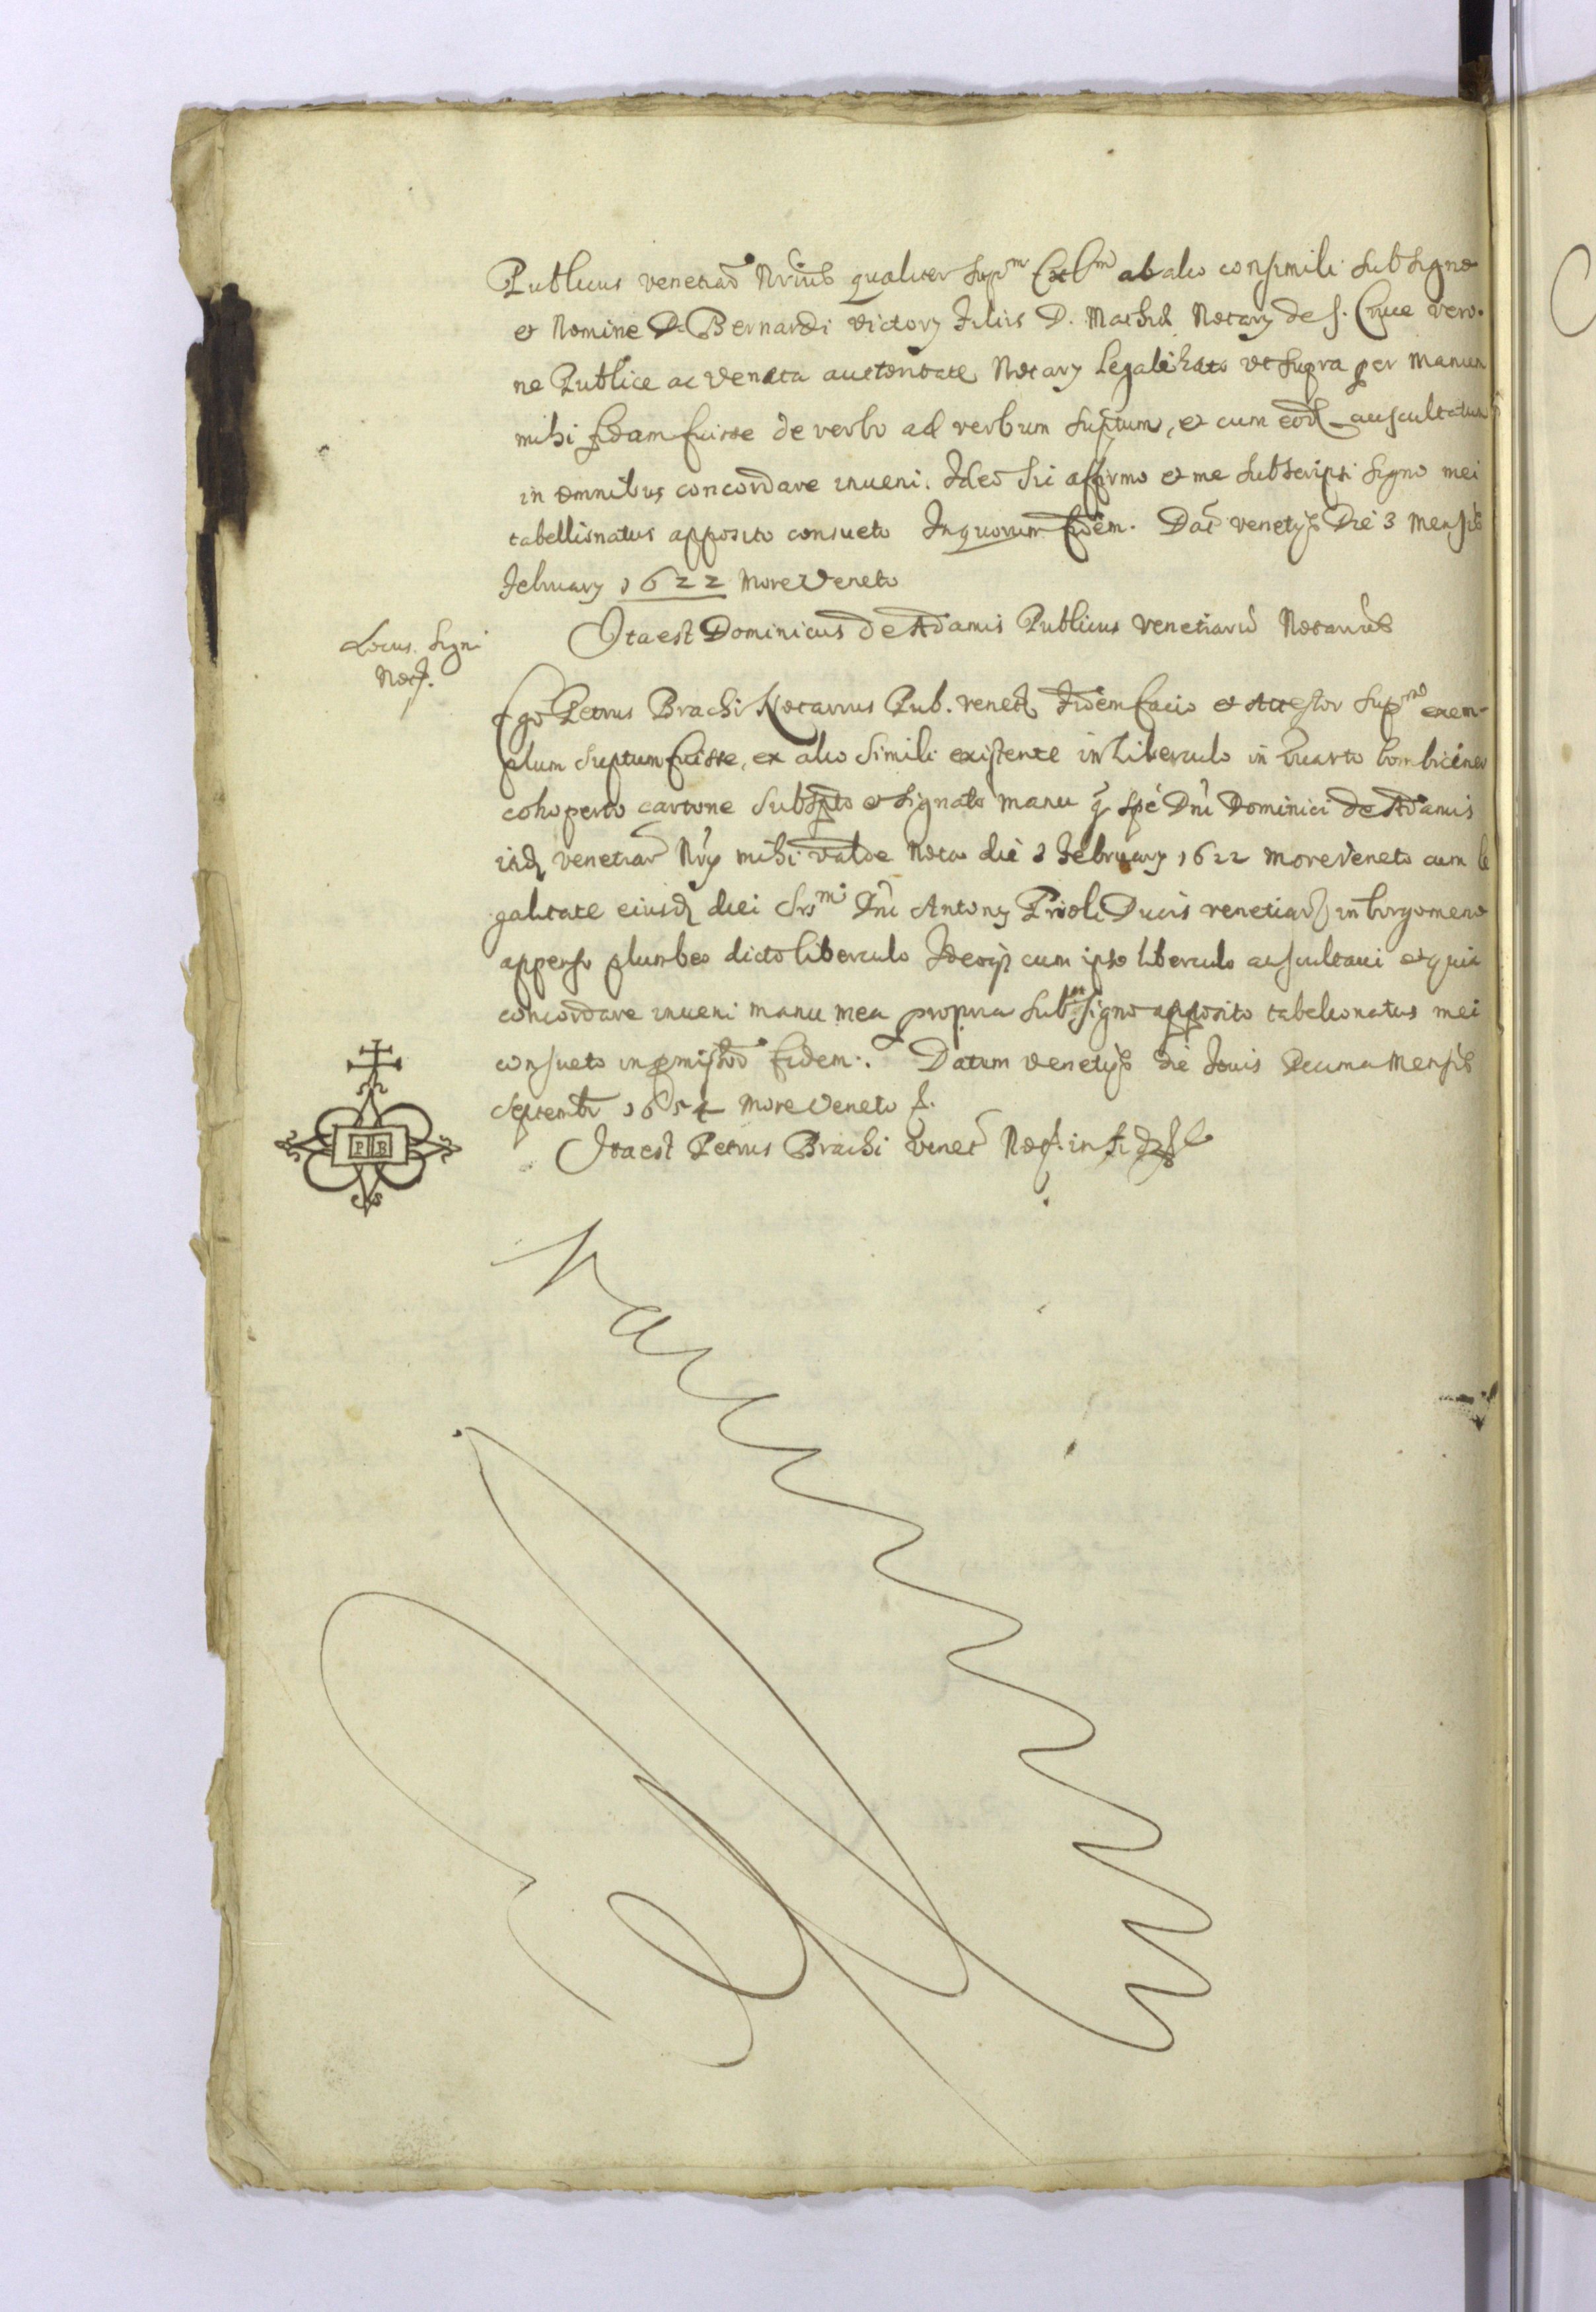 Publicus venetiaꝝ Nrius qualiter supm Exlm ab alio consimili sub signo
et Nomine D. Bernardi victorij filius D. Mathei Notarij de S. Cruce vero-
ne Publice ac Veneta auctoritate Notarij legalizato ut supra per manum
mihi fidam fuisse de verbo ad verbum suptum, et cum eod auscultatum
in omnibus concordare inveni. Ideo sic affirmo et me subscripsi signo mei
tabellionatus apposito consueto In quorum fidem. Dat venetijs Die 3 Mensis
February 1622 more Veneto
Locus Signi
Not.
Ita est Dominicus de Adamis Publicus venetiarū Notarius
Ego Petrus Brachi Notarius Pub. venet fidem facio et attestor supm exem-
plum suptum fuisse, ex alio simili existente in Liberculo in quarto bombicineo
cohoperto cartone subspto et signato manu q spe Dni Dominici de Adamis
itid venetiar Nrij mihi valde noto die 3 february 1622 more veneto cum le
galitate eiusd diei Srsmi Dni Antony Prioli Ducis venetiar in
appenso plumbeo dicto liberculo Ideoq cum ipso liberculo auscultavi et quia
concordare inveni manu mea propria subsi signo apposito tabelionatus mei
consueto in pmissoꝝ fidem. Datum venetijs die Jovis Decima Mensis
Septemb 1654 more Veneto
P B
Ita est Petrus Brachi venet Not. in fid